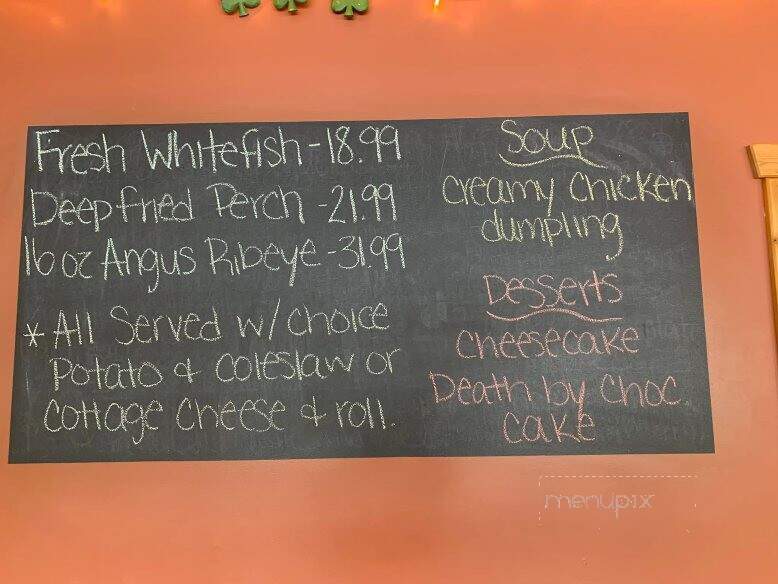 Fresh Whitefish - 18.99
Deep fried Perch - 21.99
16 oz Angus Ribeye - 31.99
* All Served w/ choice
Potato & coleslaw or
cottage cheese & roll.
Soup
creamy chicken
dumpling
Desserts
cheesecake
Death by choc.
cake
menupix